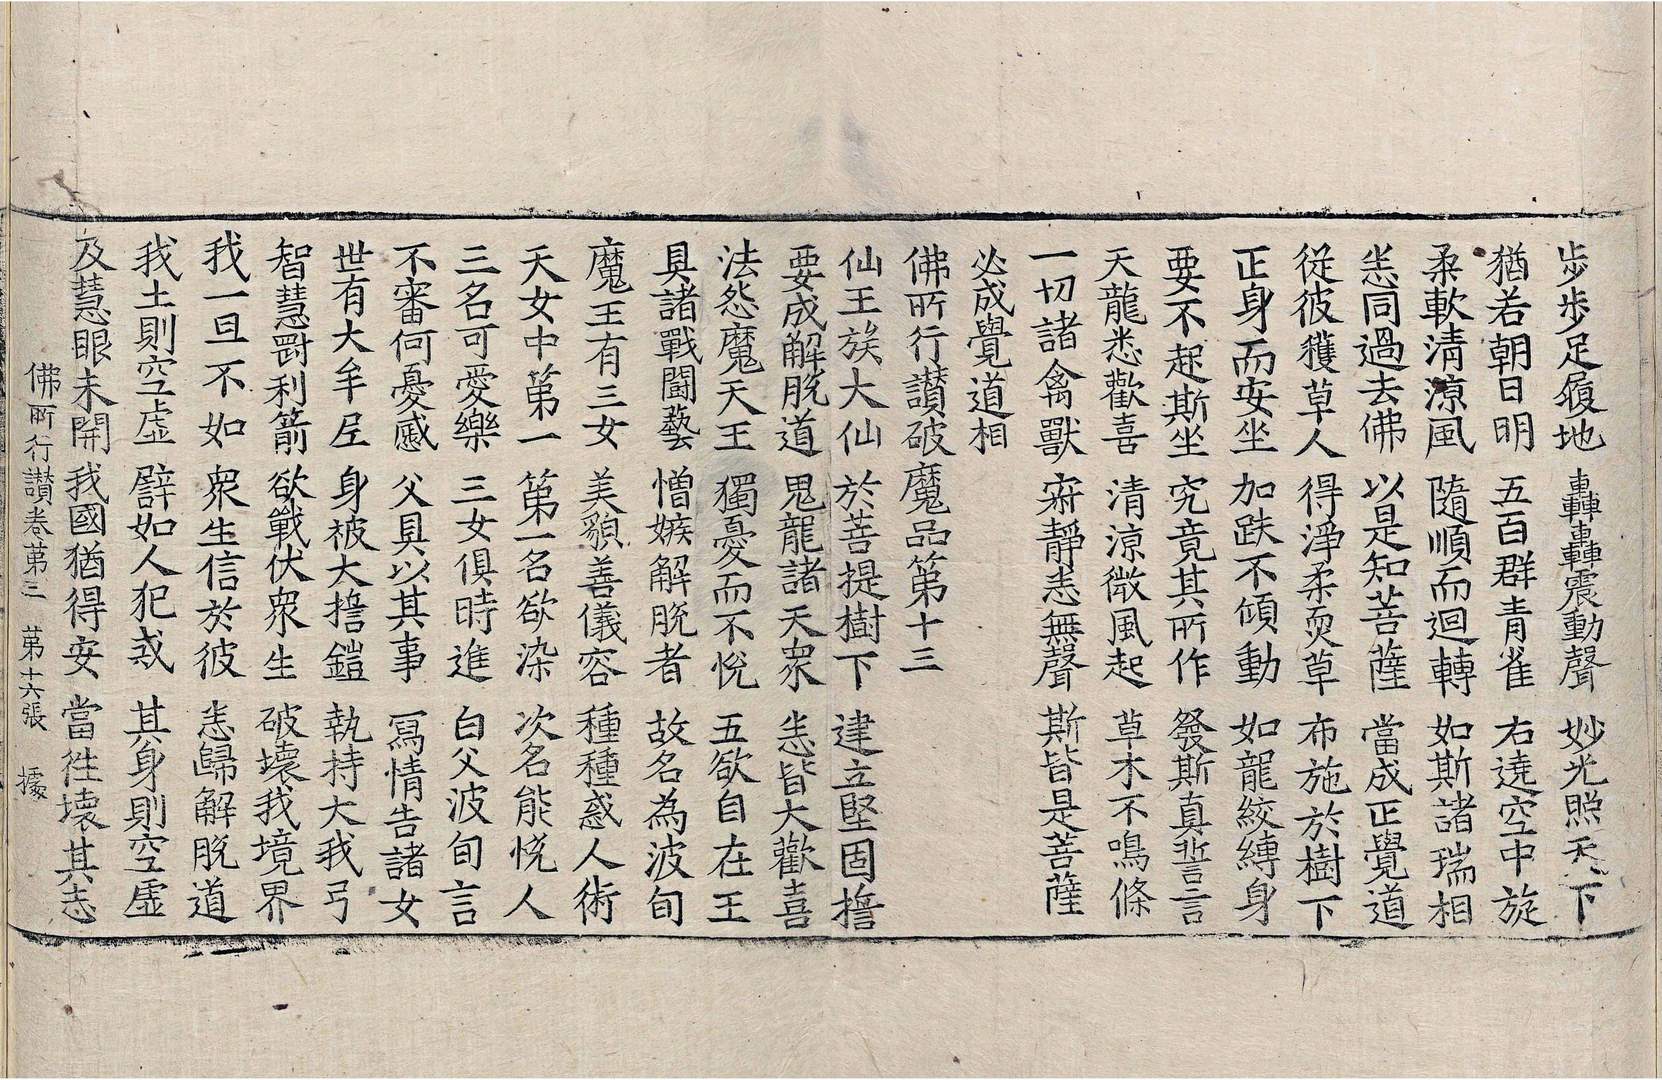 步步足履地 轟轟震動聲 妙光照天下
猶若朝日明 五百群青雀 右遶空中旋
柔軟清涼風 隨順而迴轉 如斯諸瑞相
悉同過去佛 以是知菩薩 當成正覺道
從彼穫草人 得淨柔耎草 布施於樹下
正身而安坐 加趺不傾動 如龍絞縛身
要不起斯坐 究竟其所作 發斯真誓言
天龍悉歡喜 清涼微風起 草木不鳴條
一切諸禽獸 寂靜悉無聲 斯皆是菩薩
必成覺道相
佛所行讃破魔品第十三
仙王族大仙 於菩提樹下 建立堅固擔
要成解脫道 鬼龍諸天衆 悉皆大歡喜
法怨魔天王 獨憂而不悅 五欲自在王
具諸戰鬪藝 憎嫉解脫者 故名為波旬
魔王有三女 美貌善儀容 種種惑人術
天女中第一 第一名欲染 次名能悅人
三名可愛樂 三女俱時進 白父波旬言
不審何憂慼 父具以其事 寫情告諸女
世有大牟尼 身被大擔鎧 執持大我弓
智慧罰利箭 欲戰伏衆生 破壞我境界
我一旦不如 衆生信於彼 悉歸解脫道
我土則空虛 譬如人犯戒 其身則空虛
及慧眼未開 我國猶得安 當徃壞其志
佛所行讃卷第三 第十六張 據